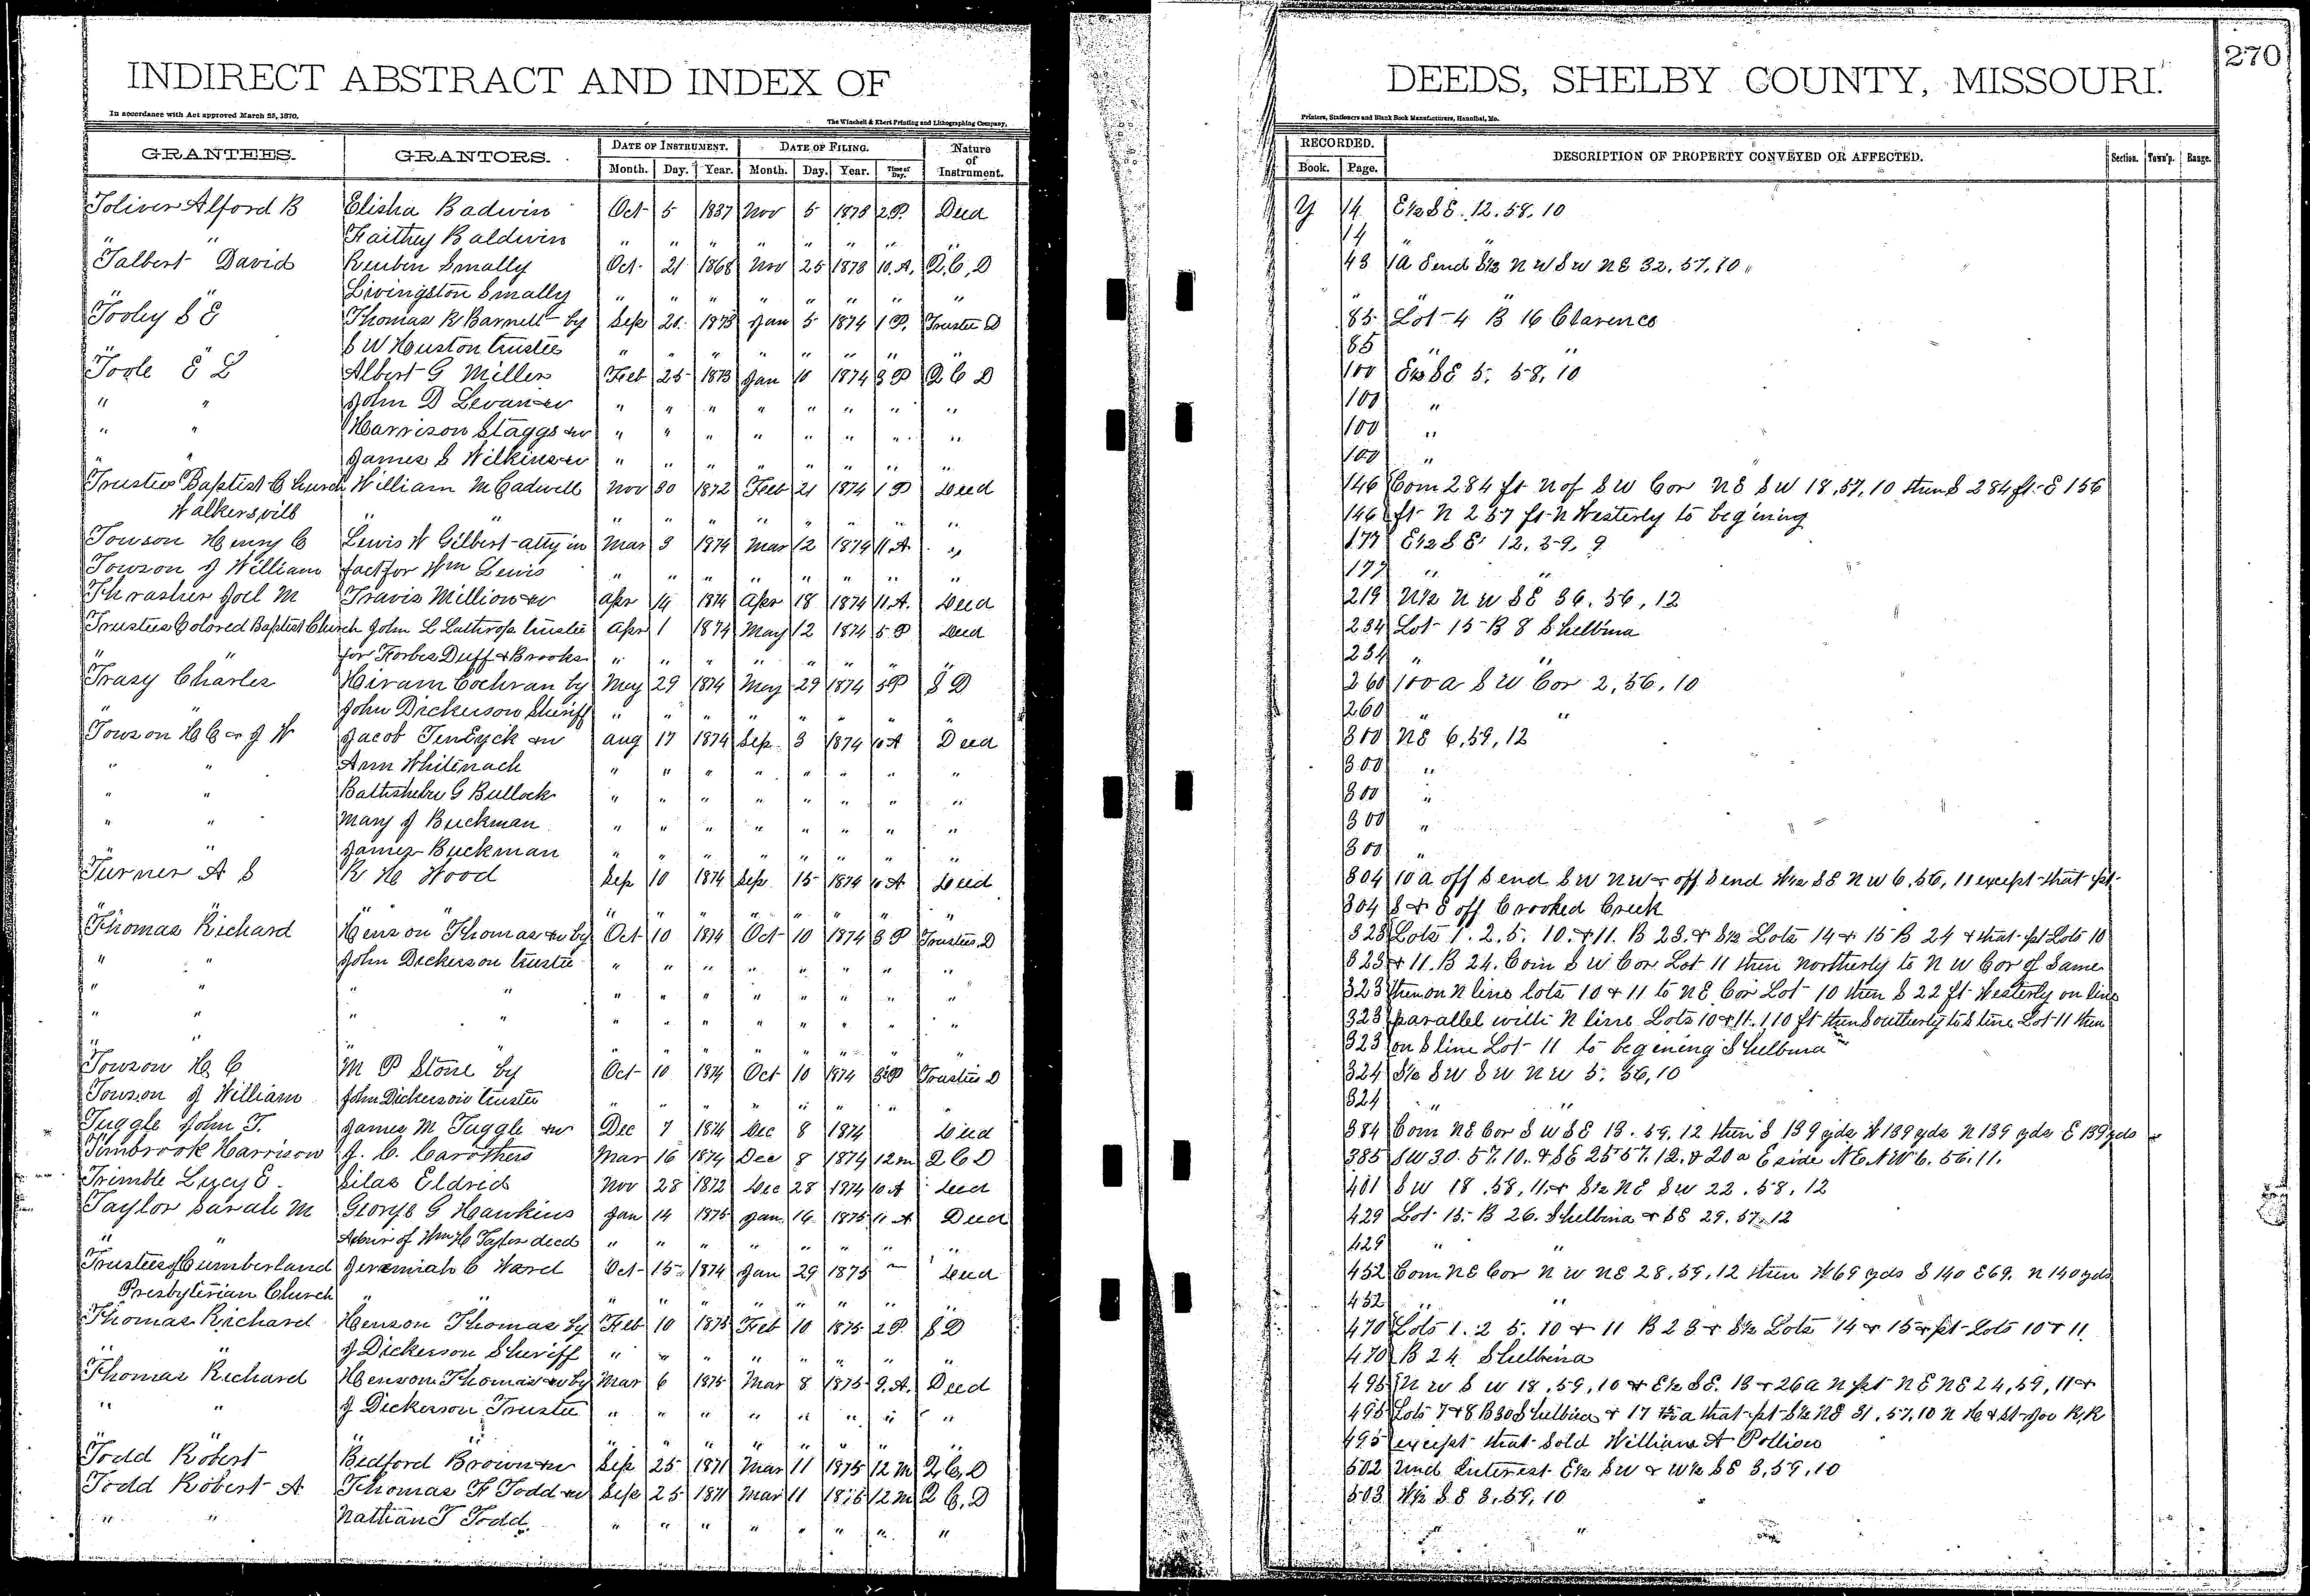 INDIRECT ABSTRACT AND INDEX OF
In accordance with Act approved March 25, 1870.
The Winchell & Ebert Printing and Lithographing Company,
GRANTEES. GRANTORS. DATE OF INSTRUMENT. DATE OF FILING. Nature of Instrument.
Month. Day. Year. Month. Day. Year. Time of Day.
Toliver Alford B Elisha Badwin Oct 5 1837 Nov 5 1873 2 P. Deed
" " Faithey Baldwin " " " " " " " "
Talbert David Reuben Smally Oct 21 1868 Nov 25 1873 10. A. Q. C. D
" " Livingston Smally " " " " " " " "
Tooley S E Thomas R Barnell by Sep 21 1873 Jan 5 1874 1 P. Trustee D
" " S W Houston trustee " " " " " " " "
Toole E L Albert G Miller Feb 25 1873 Jan 10 1874 3 P Q C D
" " John D Levan & w " " " " " " " "
" " Harrison Staggs & w " " " " " " " "
" " James S Wilkins & w " " " " " " " "
Trustees Baptist Church William McCadwell Nov 30 1872 Feb 21 1874 1 P Deed
Walkersvill " " " " " " " " " "
Towson Henry C Lewis W Gilbert atty in Mar 3 1874 Mar 12 1874 11 A. "
Towson J William fact for Wm Lewis " " " " " " " "
Thrasher Joel M Travis Million & w Apr 14 1874 Apr 18 1874 11 A. Deed
Trustees Colored Baptist Church John L Lathrop trustee Apr 1 1874 May 12 1874 5 P Deed
" " for Forbes Duff & Brooks " " " " " " " "
Trasy Charles Hiram Cochran by May 29 1874 May 29 1874 5 P S D
" " John Dickerson Sheriff " " " " " " " "
Towson H C & J W Jacob TenEyck & w Aug 17 1874 Sep 3 1874 10 A Deed
" " Ann Whitenack " " " " " " " "
" " Bathsheba G Bullock " " " " " " " "
" " Mary J Buckman " " " " " " " "
" " James Buckman " " " " " " " "
Turner A S R H Wood Sep 10 1874 Sep 15 1874 10 A Deed
" " " " " " " " " " " "
Thomas Richard Henson Thomas & w by Oct 10 1874 Oct 10 1874 3 P Trustees D
" " John Dickerson trustee " " " " " " " "
" " " " " " " " " " " "
" " " " " " " " " " " "
" " " " " " " " " " " "
Towson H C M P Stone by Oct 10 1874 Oct 10 1874 3 P Trustees D
Towson J William John Dickerson trustee " " " " " " " "
Tuggle John T. James M Tuggle & w Dec 7 1874 Dec 8 1874 Deed
Timbrook Harrison J. C. Carothers Mar 16 1874 Dec 8 1874 12 m Q C D
Trimble Lucy E. Silas Eldred Nov 28 1872 Dec 28 1874 10 A Deed
Taylor Sarah M George G Hawkins Jan 14 1875 Jan 16 1875 11 A Deed
" " Admr of Wm H Taylor deed " " " " " " " "
Trustees of Cumberland Jeremiah C Ward Oct 15 1874 Jan 29 1875 " Deed
Presbyterian Church " " " " " " " " "
Thomas Richard Henson Thomas by Feb 10 1875 Feb 10 1875 2 P. S D
" " J Dickerson Sheriff " " " " " " " "
Thomas Richard Henson Thomas & w by Mar 6 1875 Mar 8 1875 9. A. Deed
" " J Dickerson Trustee " " " " " " " "
" " " " " " " " " "
Todd Robert Bedford Brown & w Sep 25 1871 Mar 11 1875 12 M Q. C. D
Todd Robert A Thomas F Todd & w Sep 25 1871 Mar 11 1875 12 M Q C. D
" " Nathan T Todd " " " " " " " "
DEEDS, SHELBY COUNTY, MISSOURI.
270
Printers, Stationers and Blank Book Manufacturers, Hannibal, Mo.
RECORDED. DESCRIPTION OF PROPERTY CONVEYED OR AFFECTED. Section. Town'p. Range.
Book. Page.
Y 14 E½ S E. 12, 58, 10
14 "
43 1 a S end S½ N W S W N E 32, 57, 10
" "
85 Lot 4 B 16 Clarence
85 " "
100 E½ S E 5, 58, 10
100 "
100 "
100 "
146 Com 284 ft N of S W Cor N E S W 18, 57, 10 then S 284 ft E 156
146 ft N 257 ft N Westerly to beg'ining
177 E½ S E 12, 59, 9
177 " "
219 N½ N W S E 36, 56, 12
234 Lot 15 B 8 Shelbina
234 " "
260 100 a S W Cor 2, 56, 10
260 " "
300 N E 6, 59, 12
300 "
300 "
300 "
300 "
304 10 a off S end S W N W & off S end W½ S E N W 6, 56, 11 except that pt
304 S & E off Crooked Creek
323 Lots 1. 2, 5. 10. & 11. B 23. & S½ Lots 14 & 15 B 24 & that pt Lots 10
323 & 11. B 24. Com S W Cor Lot 11 then northerly to N W Cor of Same
323 then on N line lots 10 & 11 to N E Cor Lot 10 then S 22 ft Westerly on line
323 parallel with N line Lots 10 & 11. 110 ft then Southerly to S line Lot 11 then
323 on S line Lot 11 to begening Shelbina
324 S½ S W S W N W 5, 56, 10
324 " "
384 Com N E Cor S W S E 13. 59. 12 then S 139 yds W 139 yds N 139 yds E 139 yds
385 S W 30. 57. 10. & S E 25 57. 12. & 20 a E side N E N W 6. 56. 11.
401 S W 18, 58, 11 & S½ N E S W 22. 58. 12
429 Lot 15. B 26. Shelbina & S E 29. 57. 12
429 " "
452 Com N E Cor N W N E 28, 59, 12 then W 69 yds S 140 E 69. N 140 yds
452 " "
470 Lots 1. 2 5. 10 & 11 B 23 & S½ Lots 14 & 15 & pt Lots 10 & 11
470 B 24 Shelbina
495 N W S W 18, 59, 10 & E½ S E. 13 & 26 a N pt N E N E 24, 59, 11 &
495 Lots 7 & 8 B 30 Shelbina & 17 a that pt S½ N E 31, 57, 10 N H & St Joe R R
495 except that Sold William A Pollion
502 Und Interest E½ S W & W½ S E 3, 59, 10
503 W½ S E 3, 59, 10
" "